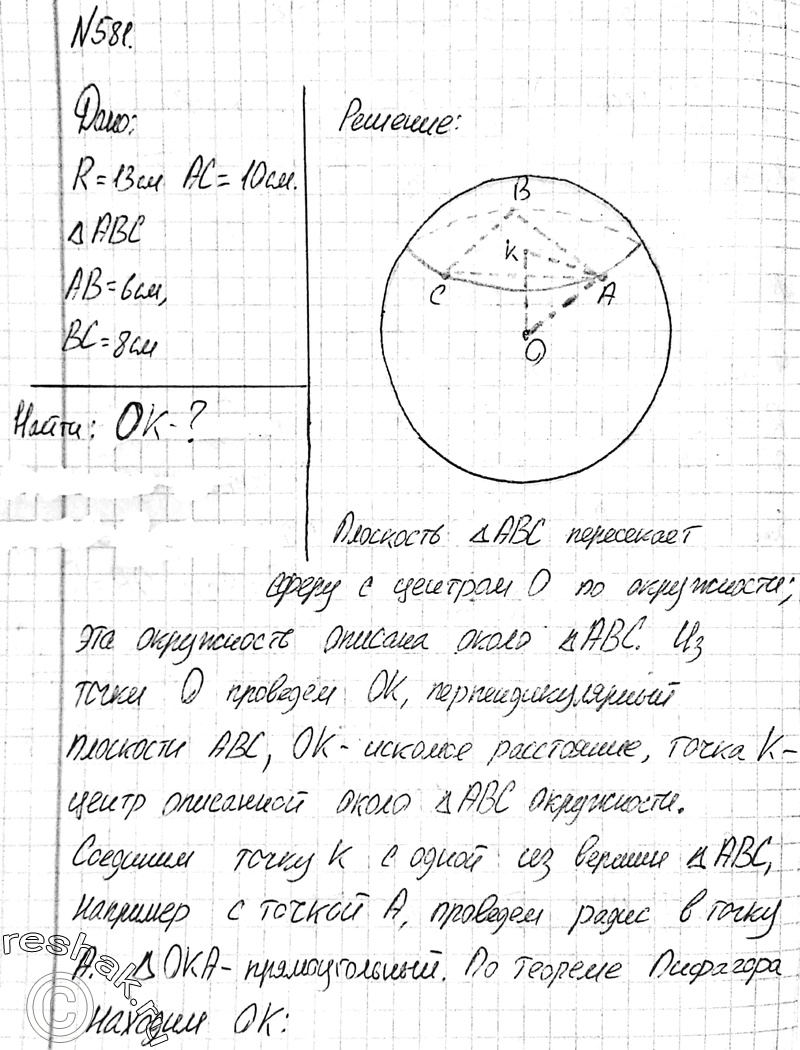 N581.
Дано:
R=13см AC=10см.
ΔABC
AB=6см,
BC=8см
Найти: OK-?
Решение:
B
K
C
A
O
Плоскость ΔABC пересекает
сферу с центром O по окружности;
эта окружность описана около ΔABC. Из
точки O проведем OK, перпендикулярный
плоскости ABC, OK- искомое расстояние, точка K-
центр описанной около ΔABC окружности.
Соединим точку K с одной из вершин ΔABC,
например с точкой A, проведем радис в точку
A. ΔOKA- прямоугольный. По теореме Пифагора
находим OK:
reshak.ru
©